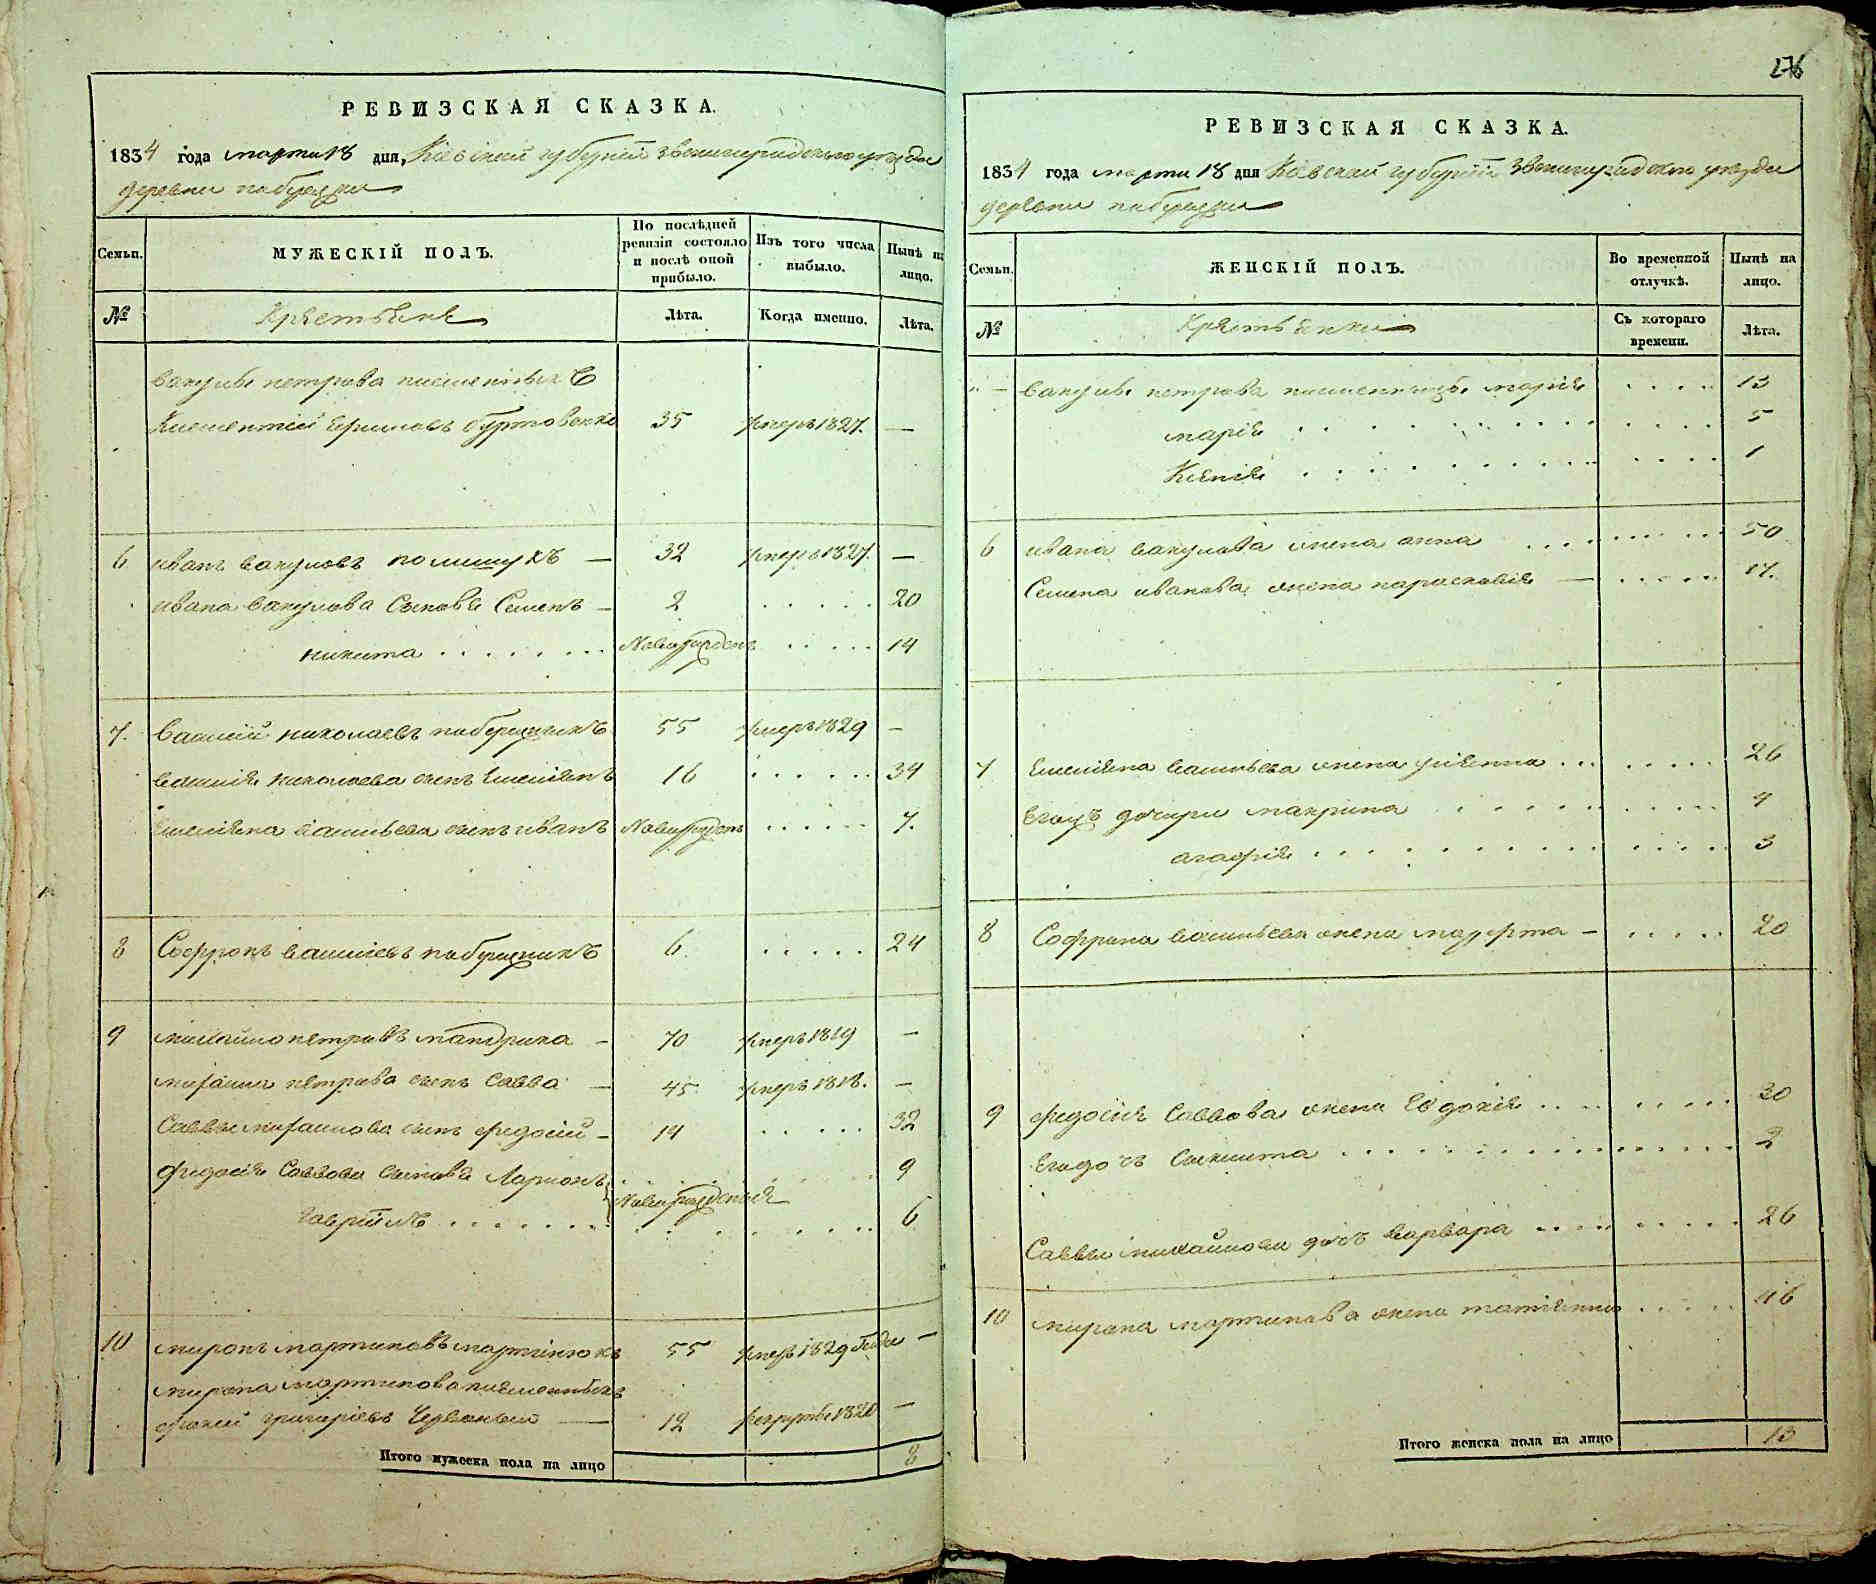 276
РЕВИЗСКАЯ СКАЗКА.
1834 года марта 18 дня, Кіевской губерніи Звенигородского уезда
деревни
Семьи.
МУЖЕСКІЙ ПОЛЪ.
По послѣдней ревизіи состояло и послѣ оной прибыло.
Изъ того числа выбыло.
Нынѣ на лицо.
№
Крестьяне
Лѣта.
Когда именно.
Лѣта.
Вакулы петрова
Климентій 35 умеръ 1827. —
6 иванъ вакуловъ полищукъ — 32 умеръ 1827. —
ивана вакулова сыновья Семенъ — 2 . . . . . 20
никита . . . . . . . Новорожденъ . . . . . 14
7. василій николаевъ 55 умеръ 1829 —
василія николаева сынъ Емеліянъ 16 . . . . . . 34
Емеліяна васильева сынъ иванъ Новорожденъ . . . . . . 7.
8 Софронъ василіевъ 6. . . . . . 24
9 михайло петровъ мандрика — 70 умеръ 1819 —
михаила петрова сынъ савва — 45 умеръ 1818. —
Саввы михаилова сынъ федосій — 14 . . . . . 32
федосія Саввова сынова Ларионъ 9
гавріилъ . . . . . . . Новорожденыя 6
10 миронъ мартиновъ мартинюкъ 55 умеръ 1829 года —
мирона мартинова
григоріевъ 12 1820 —
Итого мужеска пола на лицо 8
РЕВИЗСКАЯ СКАЗКА.
1834 года марта 18 дня Кіевской губерніи Звенигородского уезда
деревни
Семьи.
ЖЕНСКІЙ ПОЛЪ.
Во временной отлучкѣ.
Нынѣ на лицо.
№
Крестьянки
Съ котораго времени.
Лѣта.
Вакулы петрова марія . . . . 13
марія . . . . . . . . . . . . . . 5
1
6 ивана вакулова жена анна . . . . . . . . 50
Семена иванова жена парасковія — . . . . . 17.
7 Емеліяна васильева жена уліянна . . . . . . . . 26
Егожъ дочери макрина . . . . . . . . . . 4
агафія . . . . . . . . . . . . . . 3
8 Софрона васильева жена — . . . . . 20
9 федосія Саввова жена Евдокія . . . . . . . . 30
2
Саввы михайлова дочь варвара . . . . . . . . . 26
10 мирона мартинова жена татіянна . . . . . 46
Итого женска пола на лицо 13